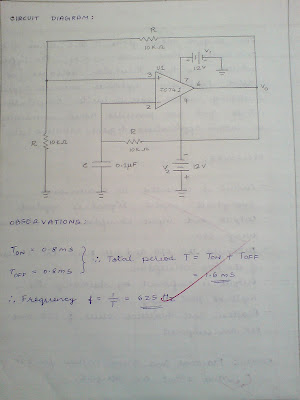 CIRCUIT DIAGRAM:
R
10KΩ
V1
12V
U1
3
+
7
6
V0
2
-
4
R
10KΩ
R
10KΩ
C
0.1μF
V2
12V
OBSERVATIONS:
TON = 0.8ms
TOFF = 0.8ms
∴ Total period T = TON + TOFF
= 1.6ms
∴ Frequency f = 1/T = 625